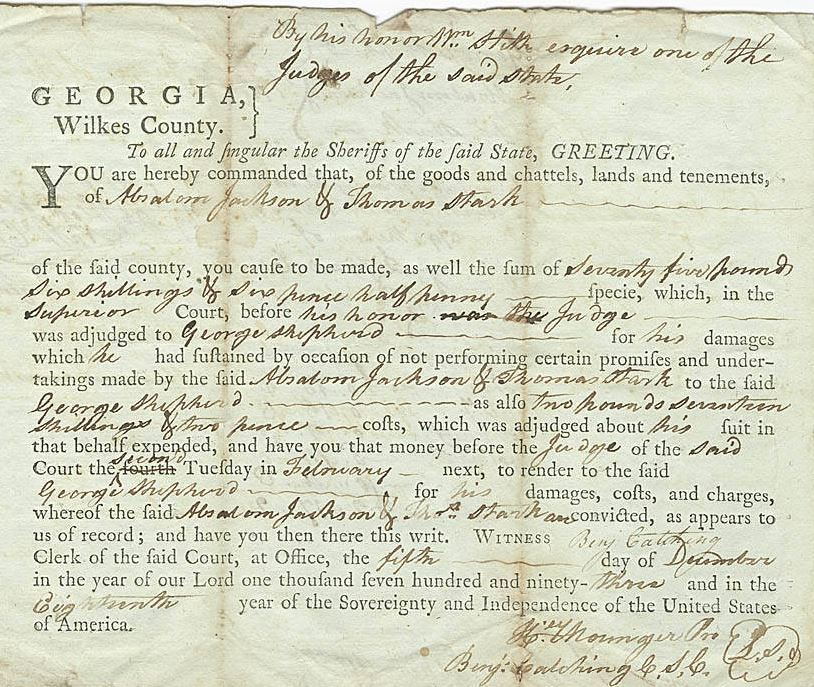 By his honor Wm Stith esquire one of the
Judges of the said state,
GEORGIA, }
Wilkes County. }
To all and ſingular the Sheriffs of the ſaid State, GREETING.
YOU are hereby commanded that, of the goods and chattels, lands and tenements,
of Absalom Jackson & Thomas Stark
of the ſaid county, you cauſe to be made, as well the ſum of Seventy five pounds
Six shillings & Six pence half penney specie, which, in the
Superior Court, before his honor the Judge
was adjudged to George Shepherd for his damages
which he had ſuſtained by occaſion of not performing certain promiſes and under-
takings made by the ſaid Absalom Jackson & Thomas Stark to the ſaid
George Shepherd as alſo two pounds seventeen
shillings & two pence coſts, which was adjudged about his ſuit in
that behalf expended, and have you that money before the Judge of the said
Court the second fourth Tueſday in February next, to render to the ſaid
George Shepherd for his damages, coſts, and charges,
whereof the ſaid Absalom Jackson & Thos. Stark are convicted, as appears to
us of record; and have you then there this writ. WITNESS Benj Catching
Clerk of the ſaid Court, at Office, the fifth day of December
in the year of our Lord one thouſand ſeven hundred and ninety-three and in the
Eighteenth year of the Sovereignty and Independence of the United States
of America.
Younger Pro L.S.
Benj. Catching C.S.C.